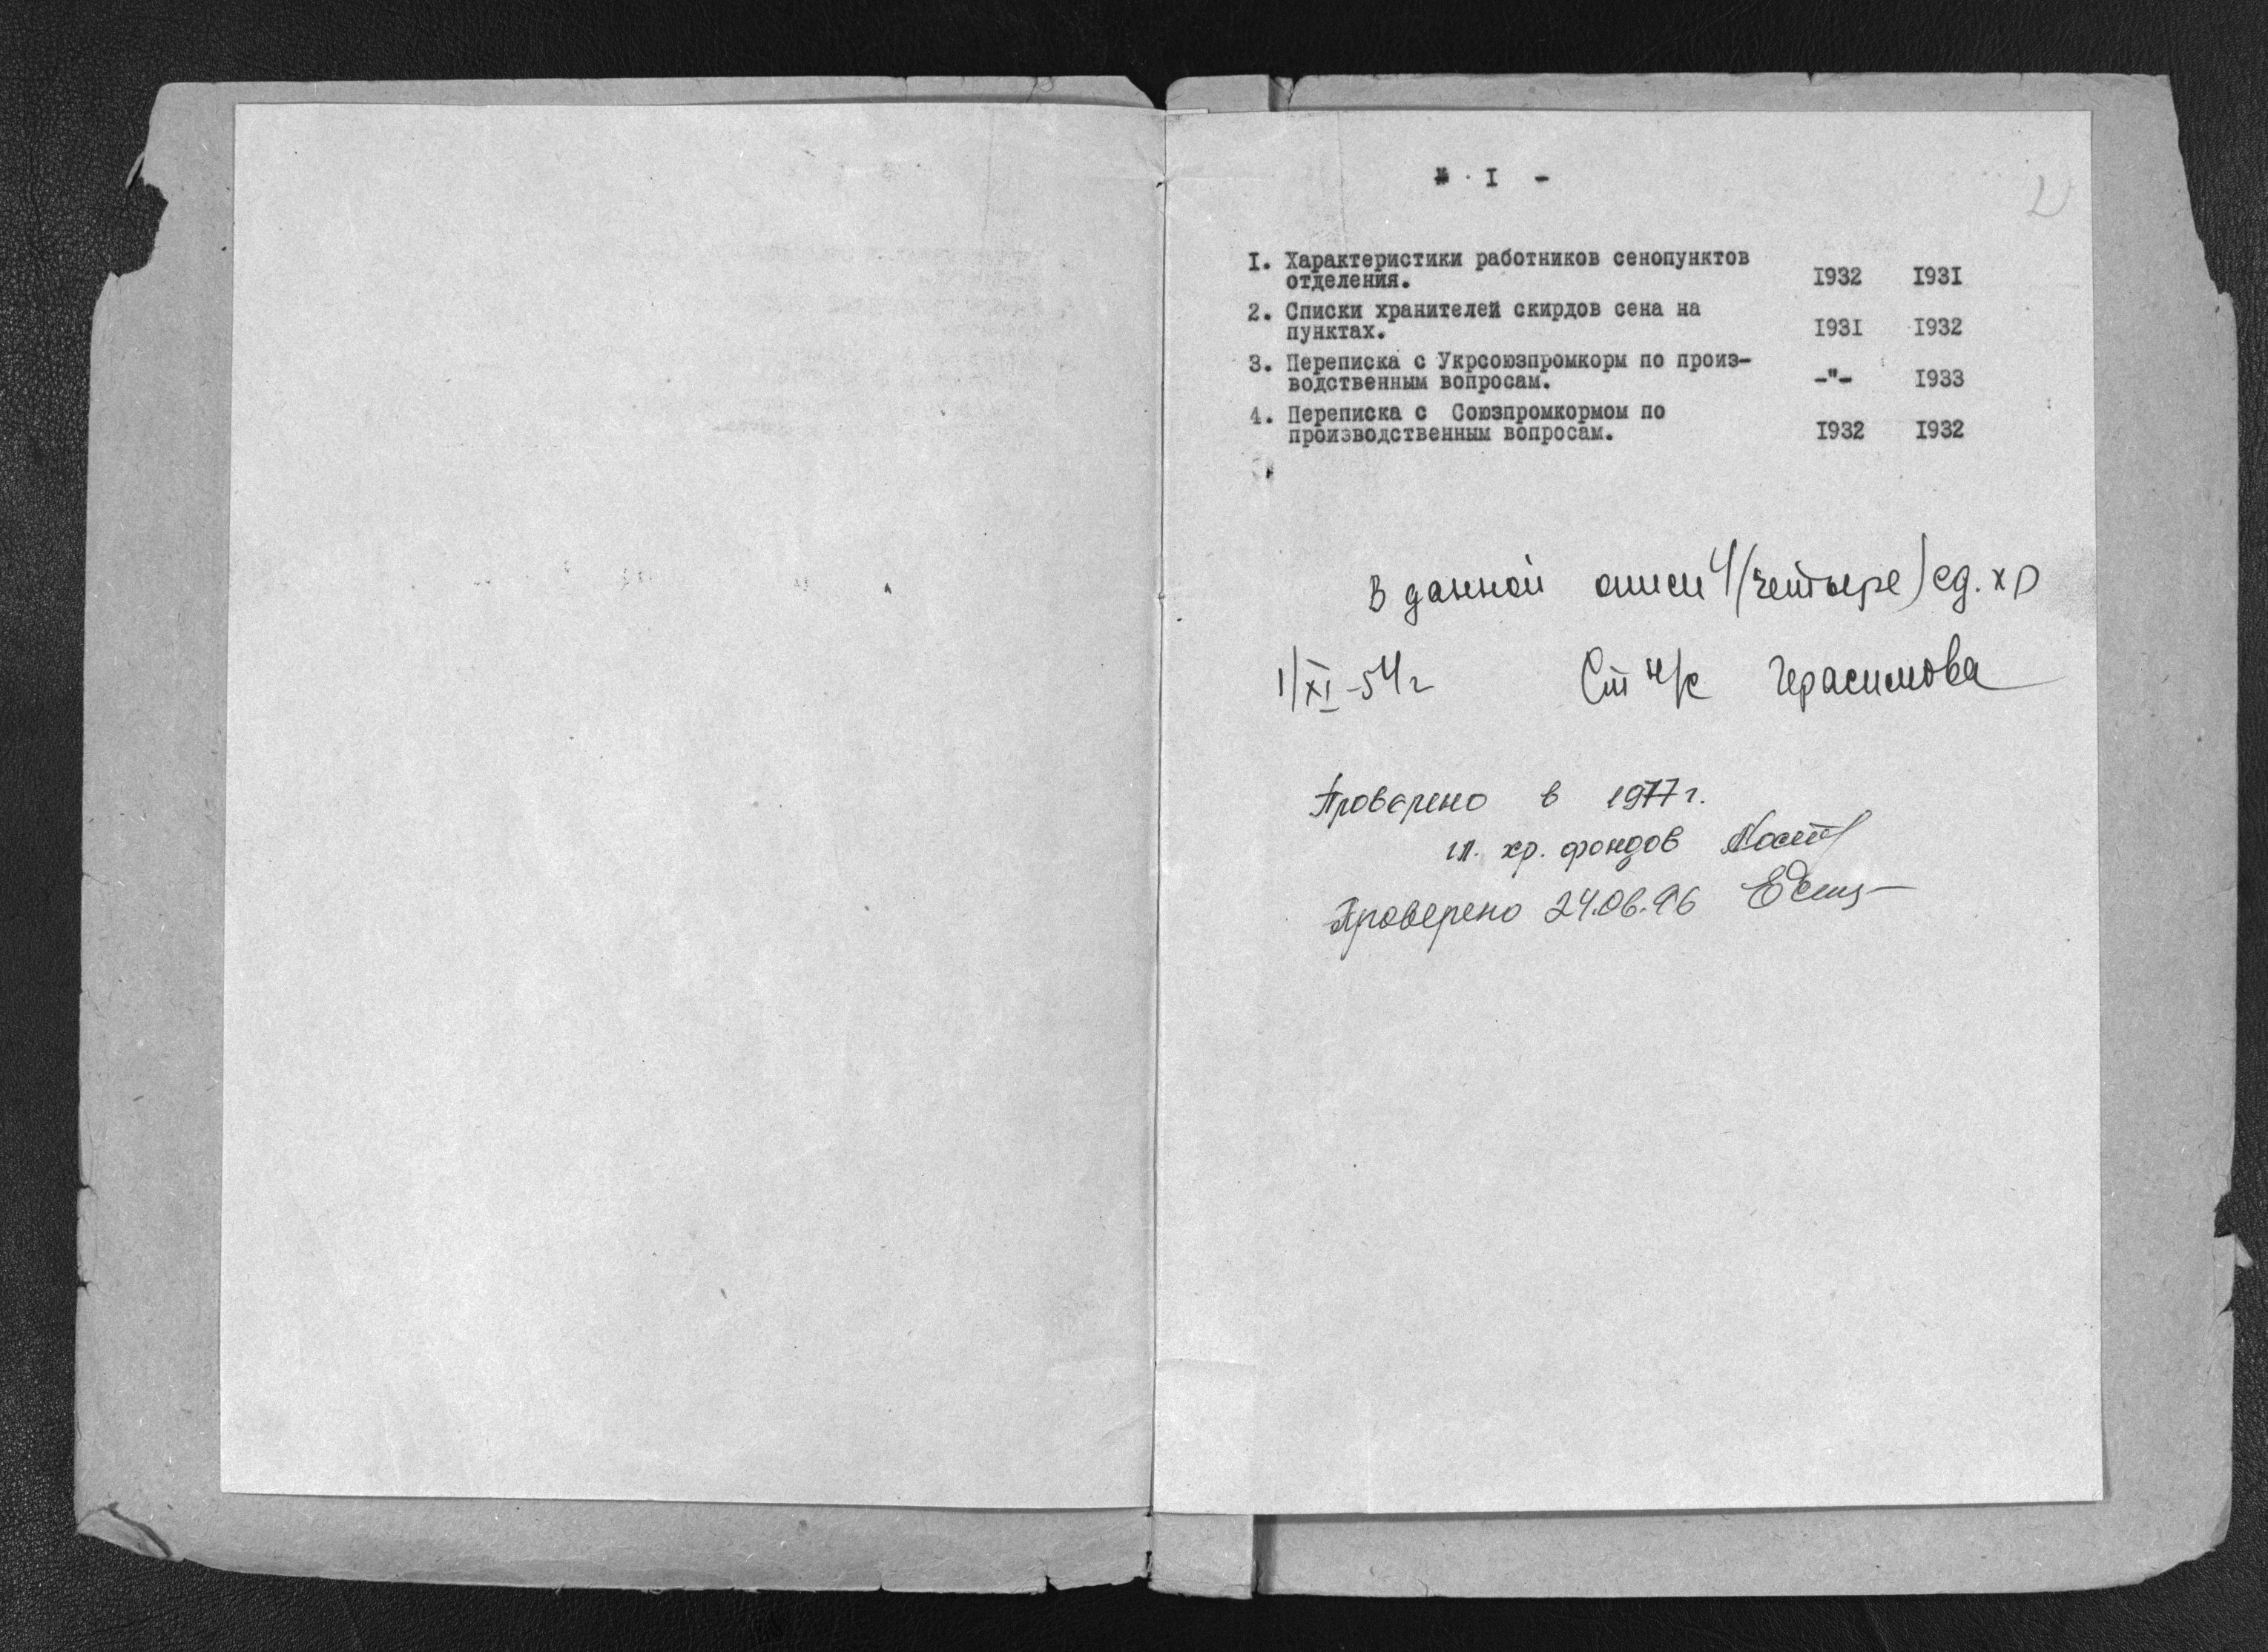 - I -
2
I. Характеристики работников сенопунктов
отделения. I932 I93I
2. Списки хранителей скирдов сена на
пунктах. I93I I932
3. Переписка с Укрсоюзпромкорм по произ-
водственным вопросам. -"- I933
4. Переписка с Союзпромкормом по
производственным вопросам. I932 I932
В данной описи 4/(четыре) ед. хр
1/XI-54г Ст н/с Герасимова
Проверено в 1977 г.
гл. хр. фондов
Проверено 24.06.96